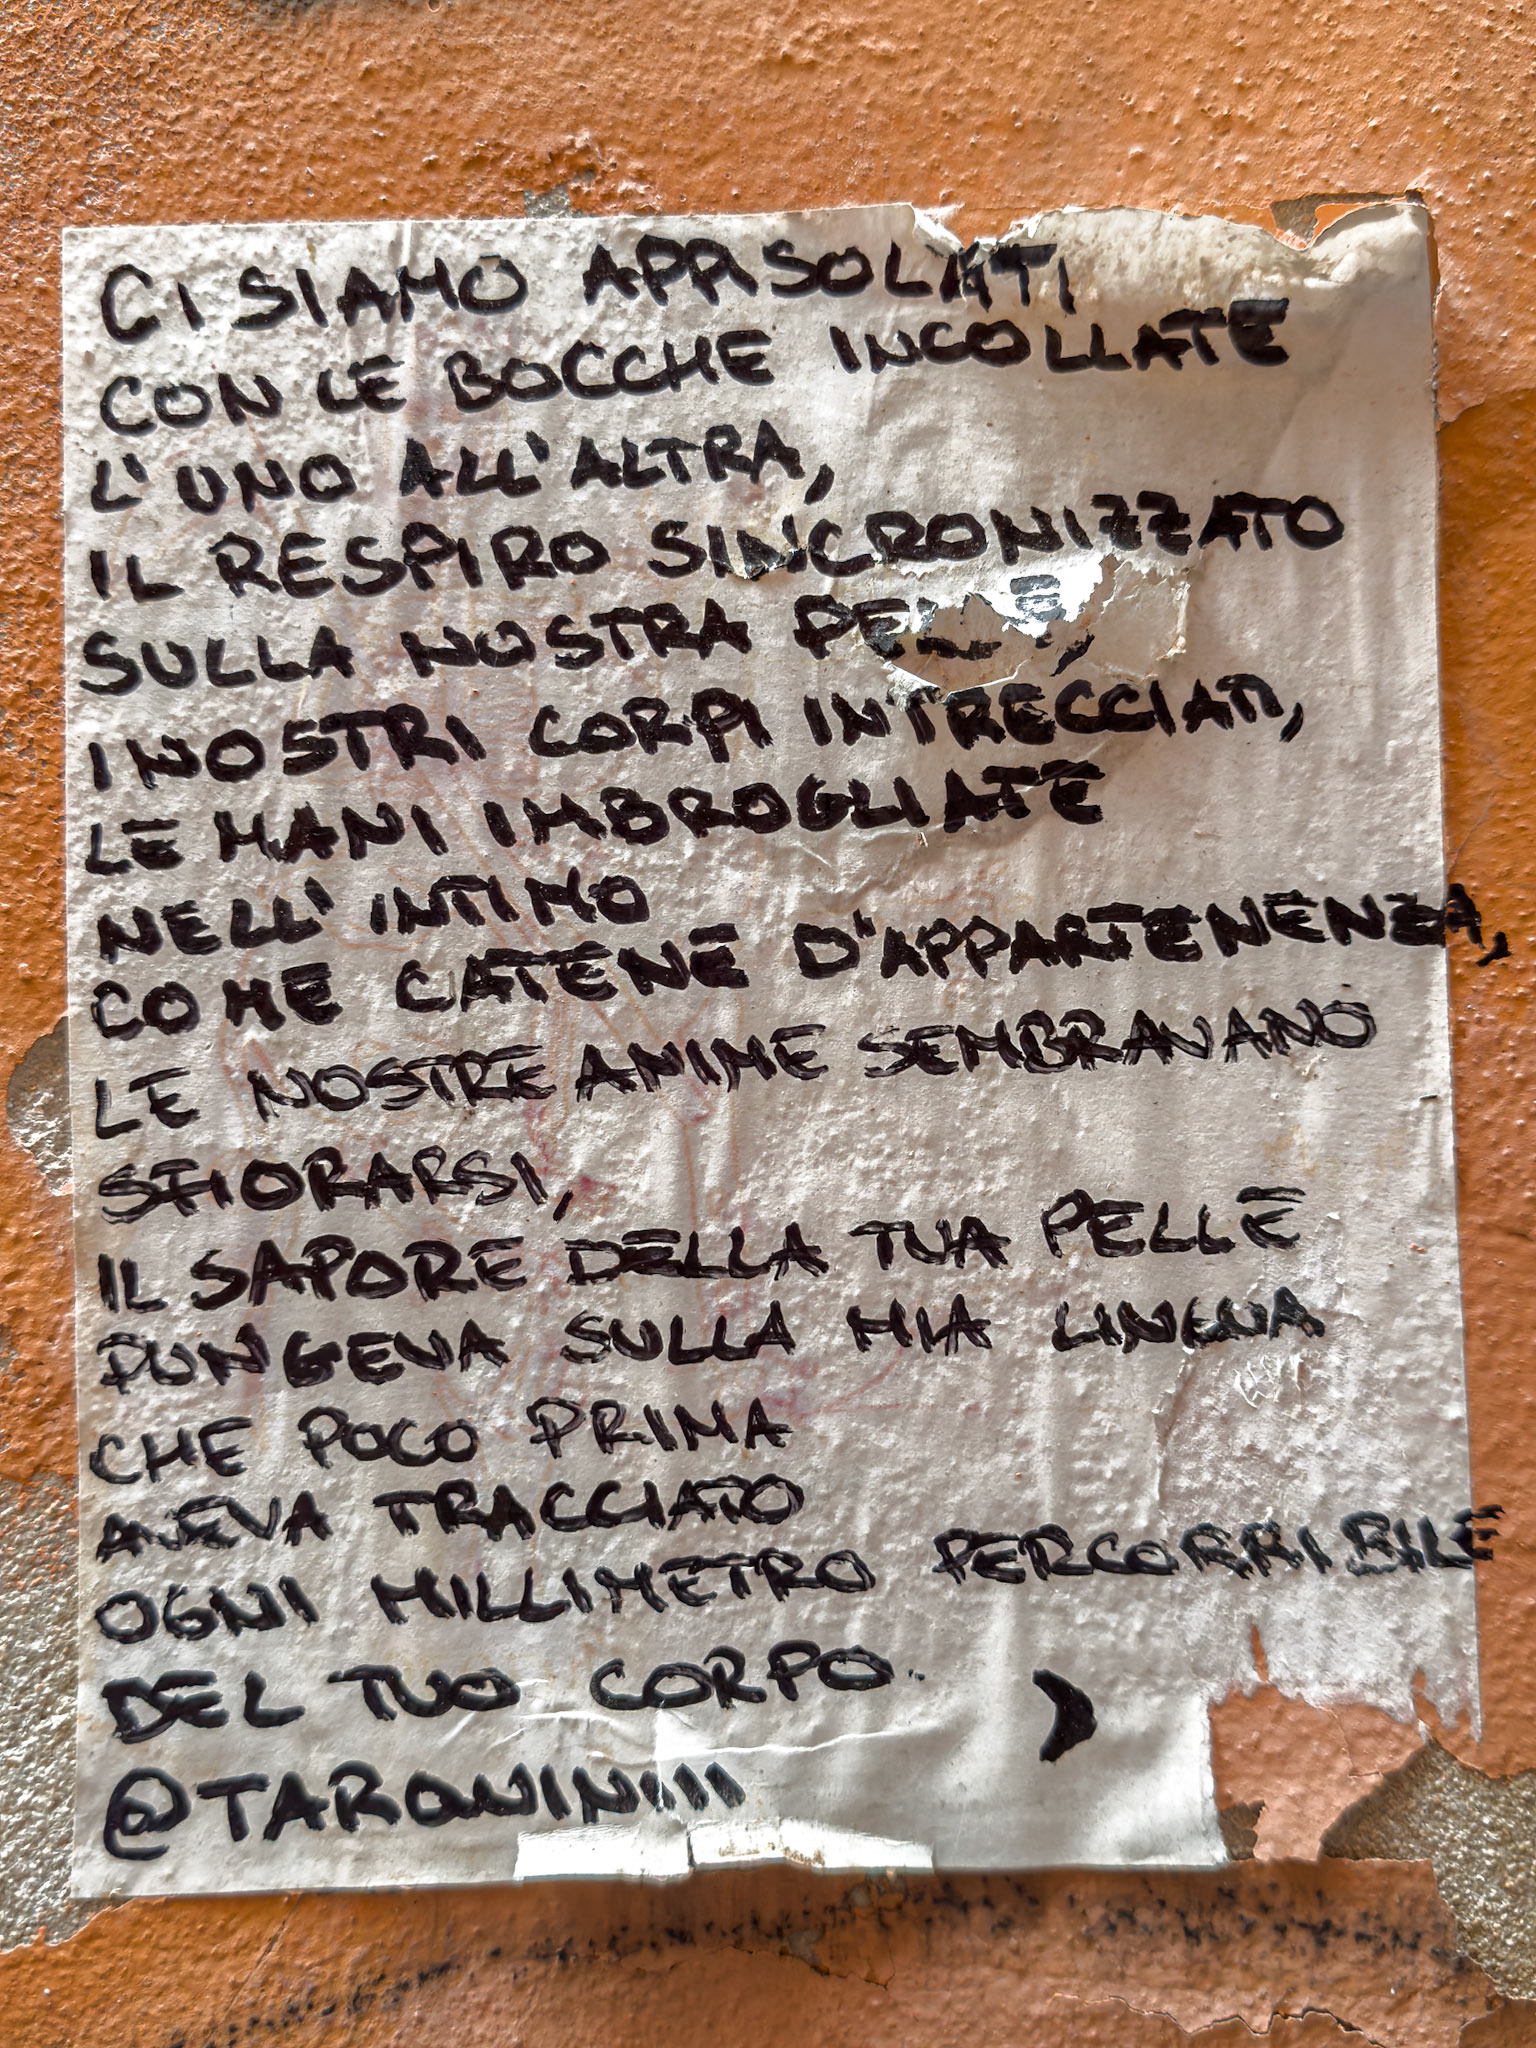 CI SIAMO APPISOLATI
CON LE BOCCHE INCOLLATE
L'UNO ALL'ALTRA,
IL RESPIRO SINCRONIZZATO
SULLA NOSTRA PELLE,
I NOSTRI CORPI INTRECCIATI,
LE MANI IMBROGLIATE
NELL'INTIMO
COME CATENE D'APPARTENENZA,
LE NOSTRE ANIME SEMBRAVANO
SFIORARSI,
IL SAPORE DELLA TUA PELLE
PUNGEVA SULLA MIA LINGUA
CHE POCO PRIMA
AVEVA TRACCIATO
OGNI MILLIMETRO PERCORRIBILE
DEL TUO CORPO.
@TARONINIII